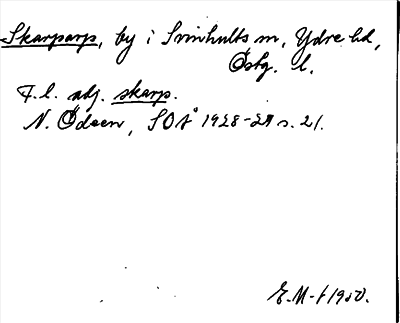 Skarparp, by i Svinhults sn, Ydre hd,
Östg. l.
F.l. adj. skarp.
N. Ödeen, SOÅ 1928-29 s. 21.
E.M-t 1950.